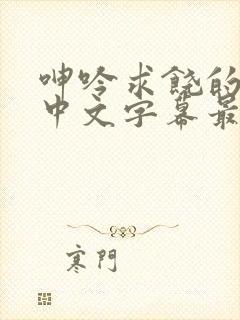 呻吟求饶的
中文字幕最
寒門